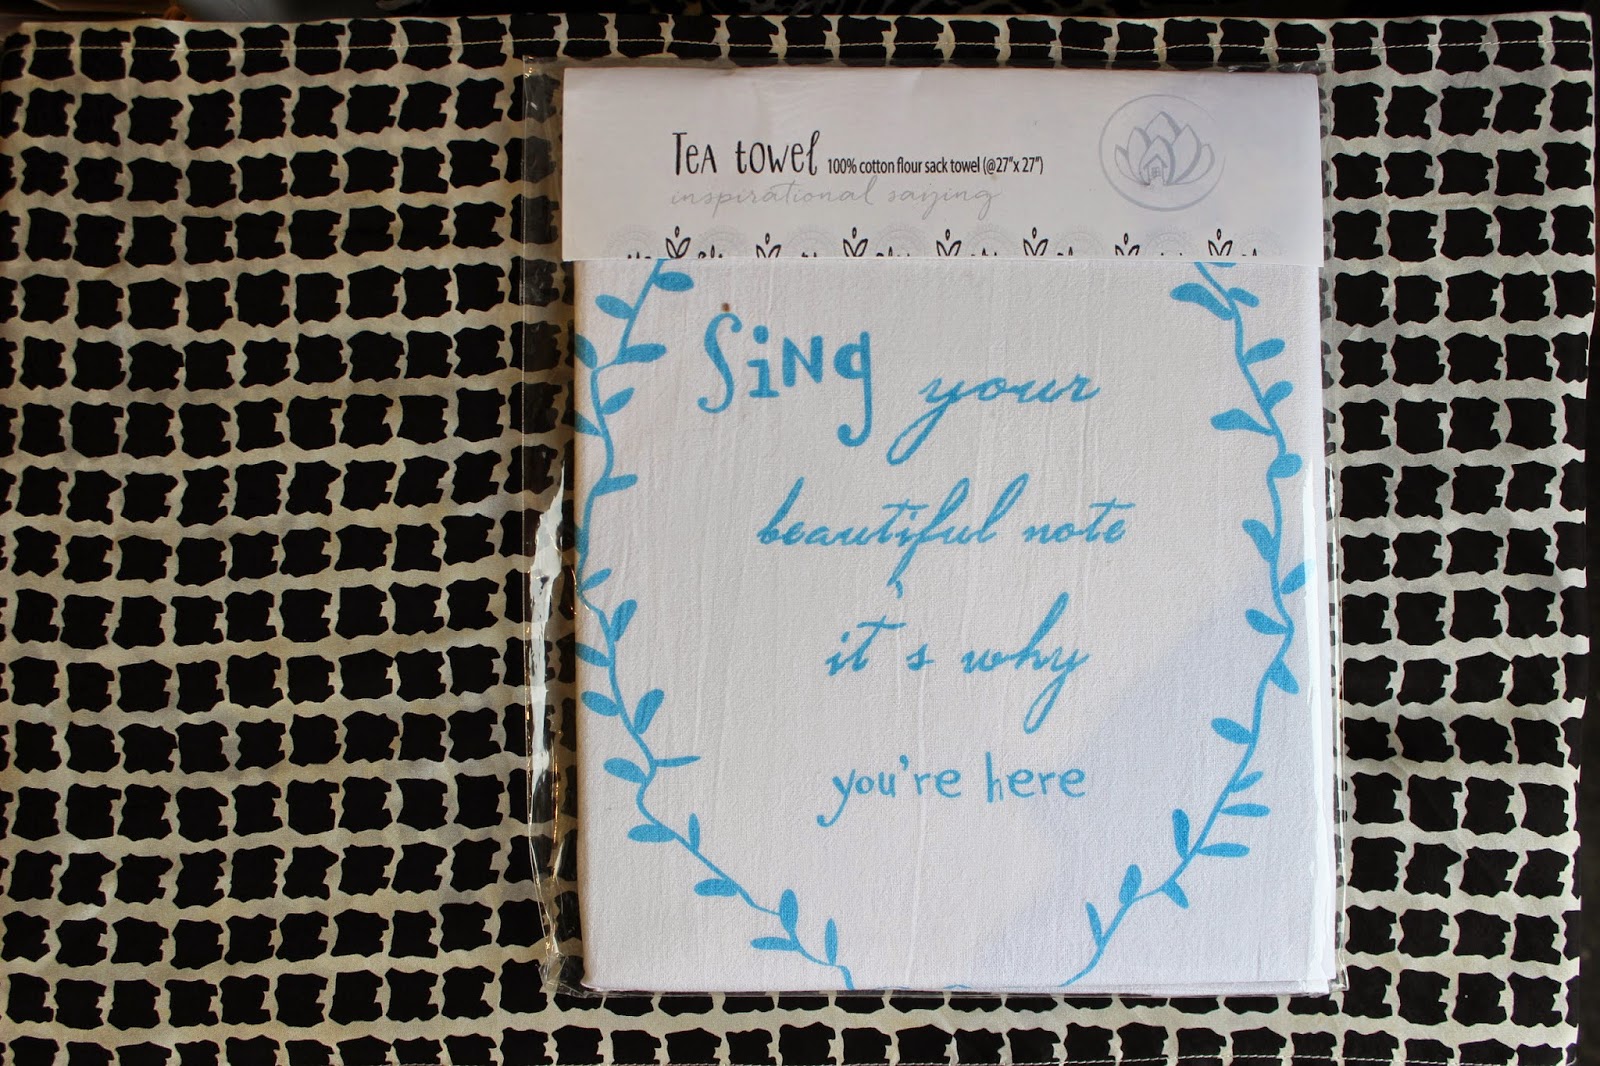 Tea towel 100% cotton flour sack towel (@27"x 27")
inspirational saying
Sing your
beautiful note
it's why
you're here